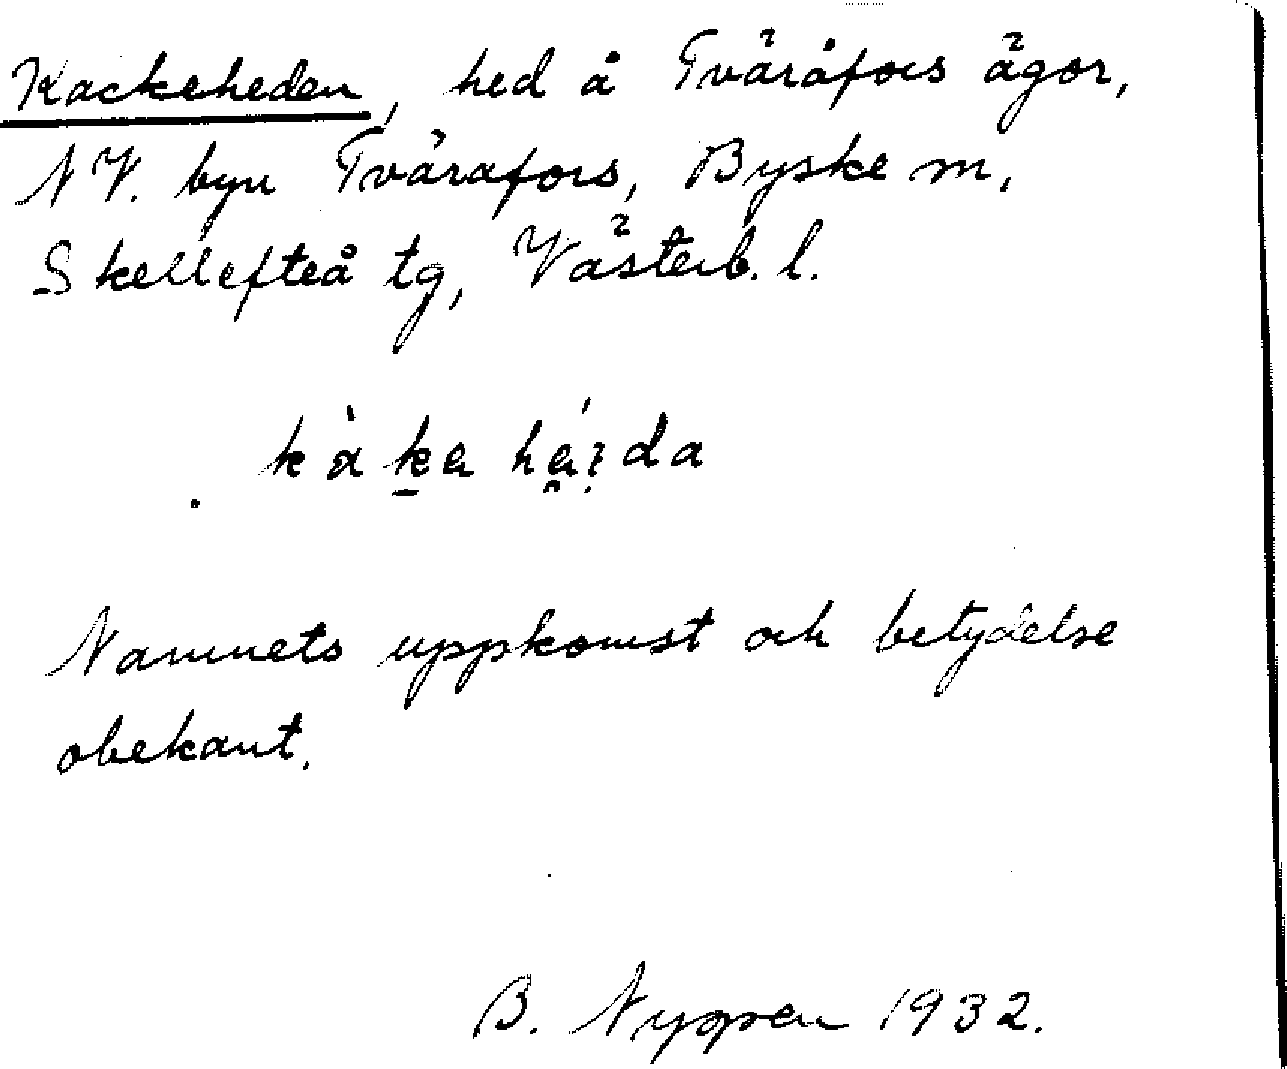 Kackeheden, hed å Tväråfors ägor,
NV. byn Tvärafors, Byske sn,
Skellefteå tg, Västerb. l.
kàka háida
Namnets uppkomst och betydelse
obekant.
B. Nygren 1932.